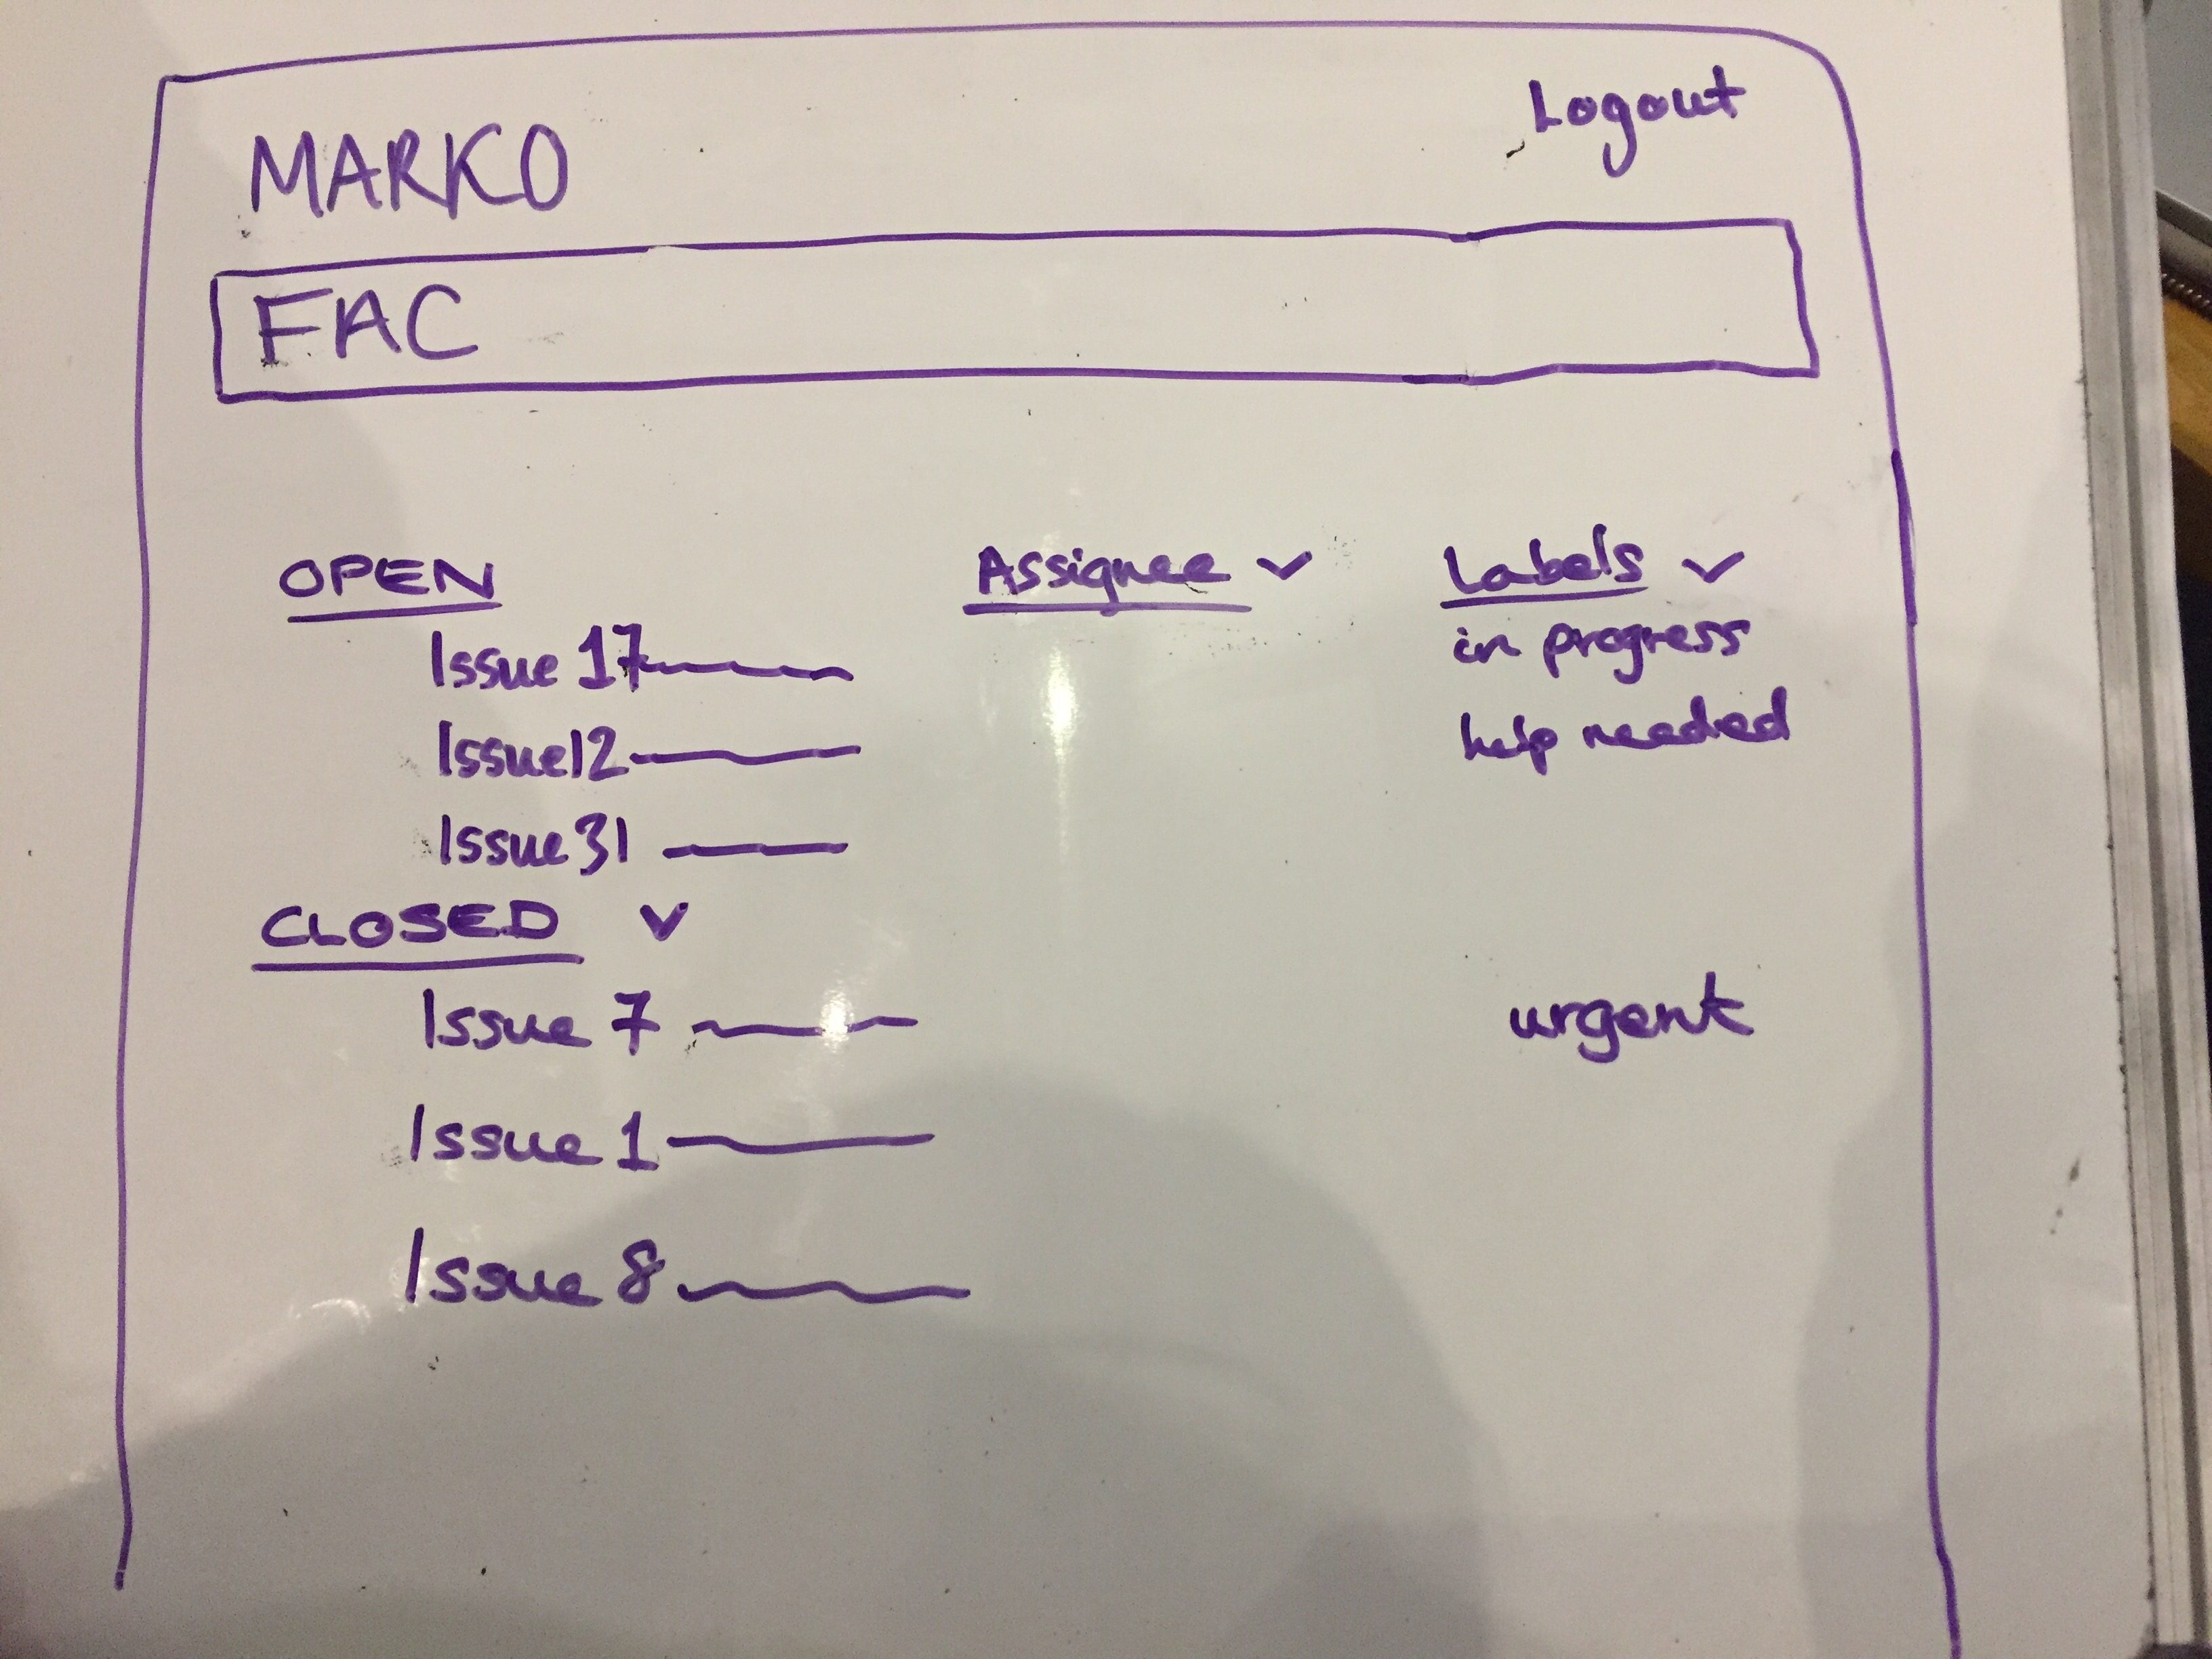 MARKO Logout
FAC
OPEN Assignee Labels
Issue 17 in progress
Issue 12 help needed
Issue 31
CLOSED
Issue 7 urgent
Issue 1
Issue 8